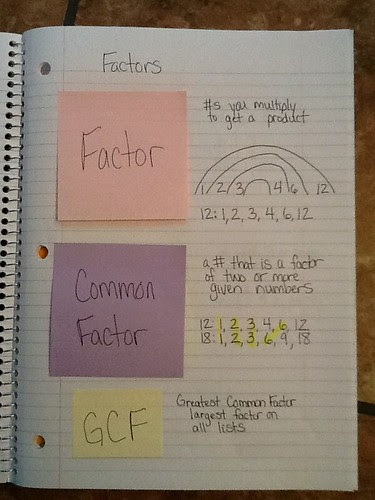 Factors
Factor
#s you multiply
to get a product
1 2 3 4 6 12
12: 1, 2, 3, 4, 6, 12
Common
Factor
a # that is a factor
of two or more
given numbers
12: 1, 2, 3, 4, 6, 12
18: 1, 2, 3, 6, 9, 18
GCF
Greatest Common Factor
largest factor on
all lists